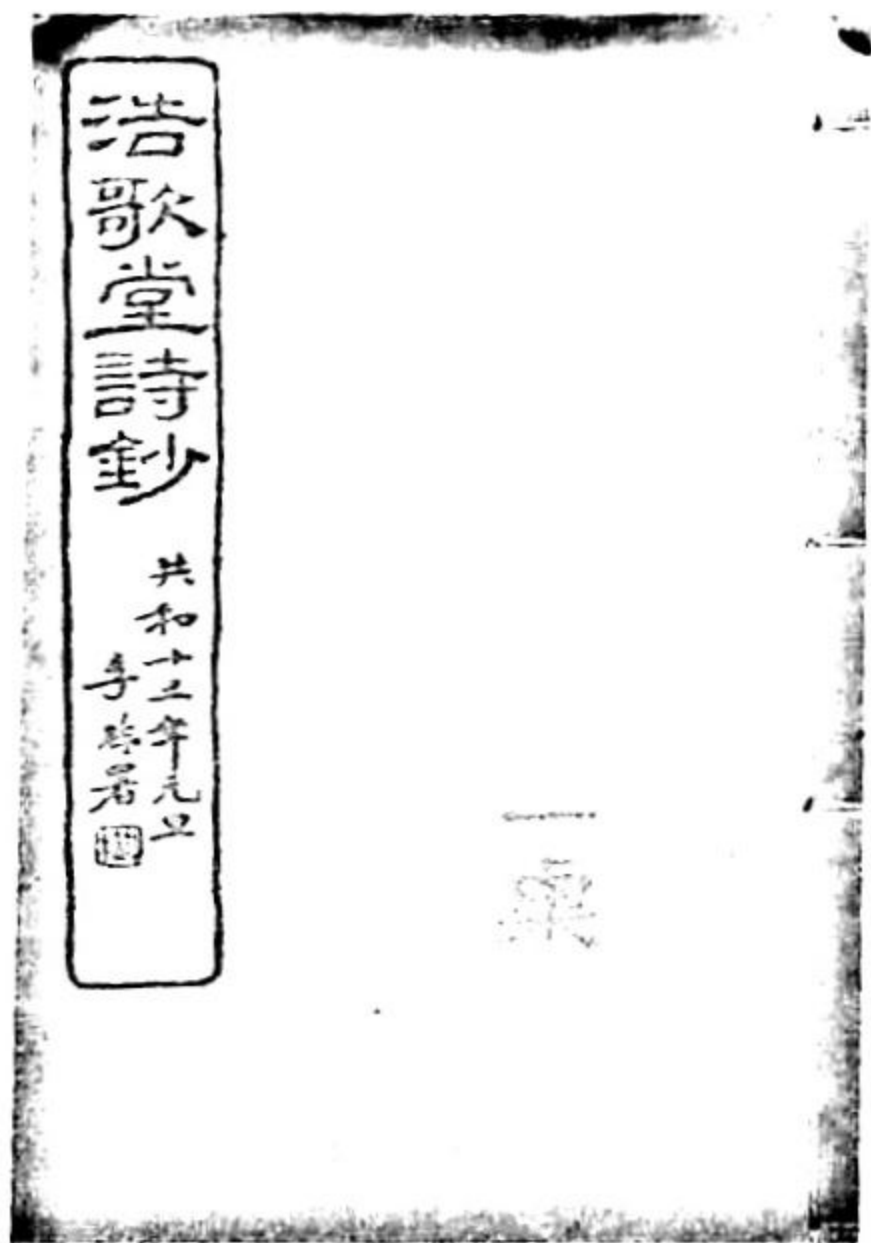 浩歌堂詩鈔
共和十三年元旦
季
署
一